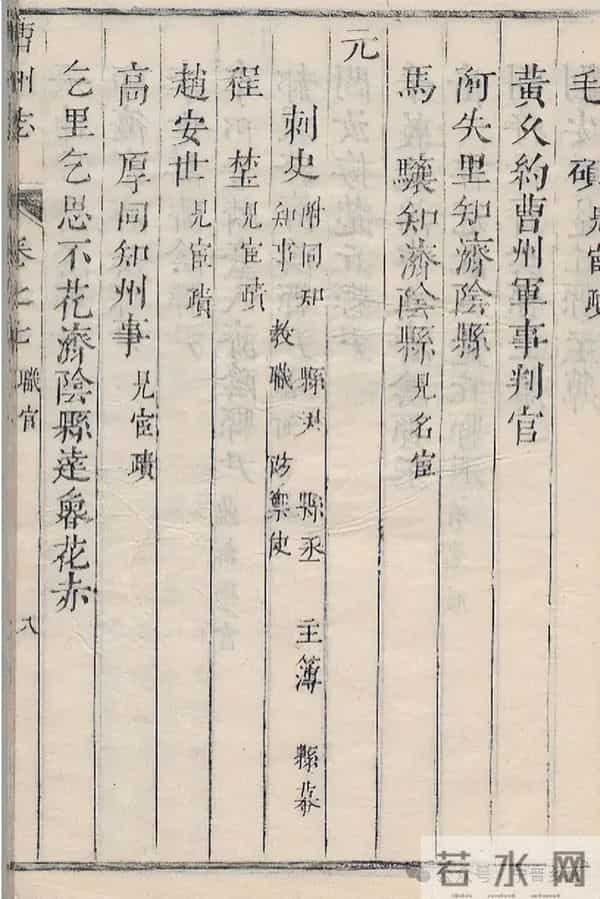 毛碩見宦蹟
黄久約曹州軍事判官
阿失里知濟陰縣
馬驤知濟陰縣見名宦
元
刺史附同知 縣尹 縣丞 主簿 縣幕
知事 教職 防禦使
程埜見宦蹟
趙安世見宦蹟
高厚同知州事見宦蹟
乞里乞思不花濟陰縣達魯花赤
曹州志 卷之七 職官 八
若水网